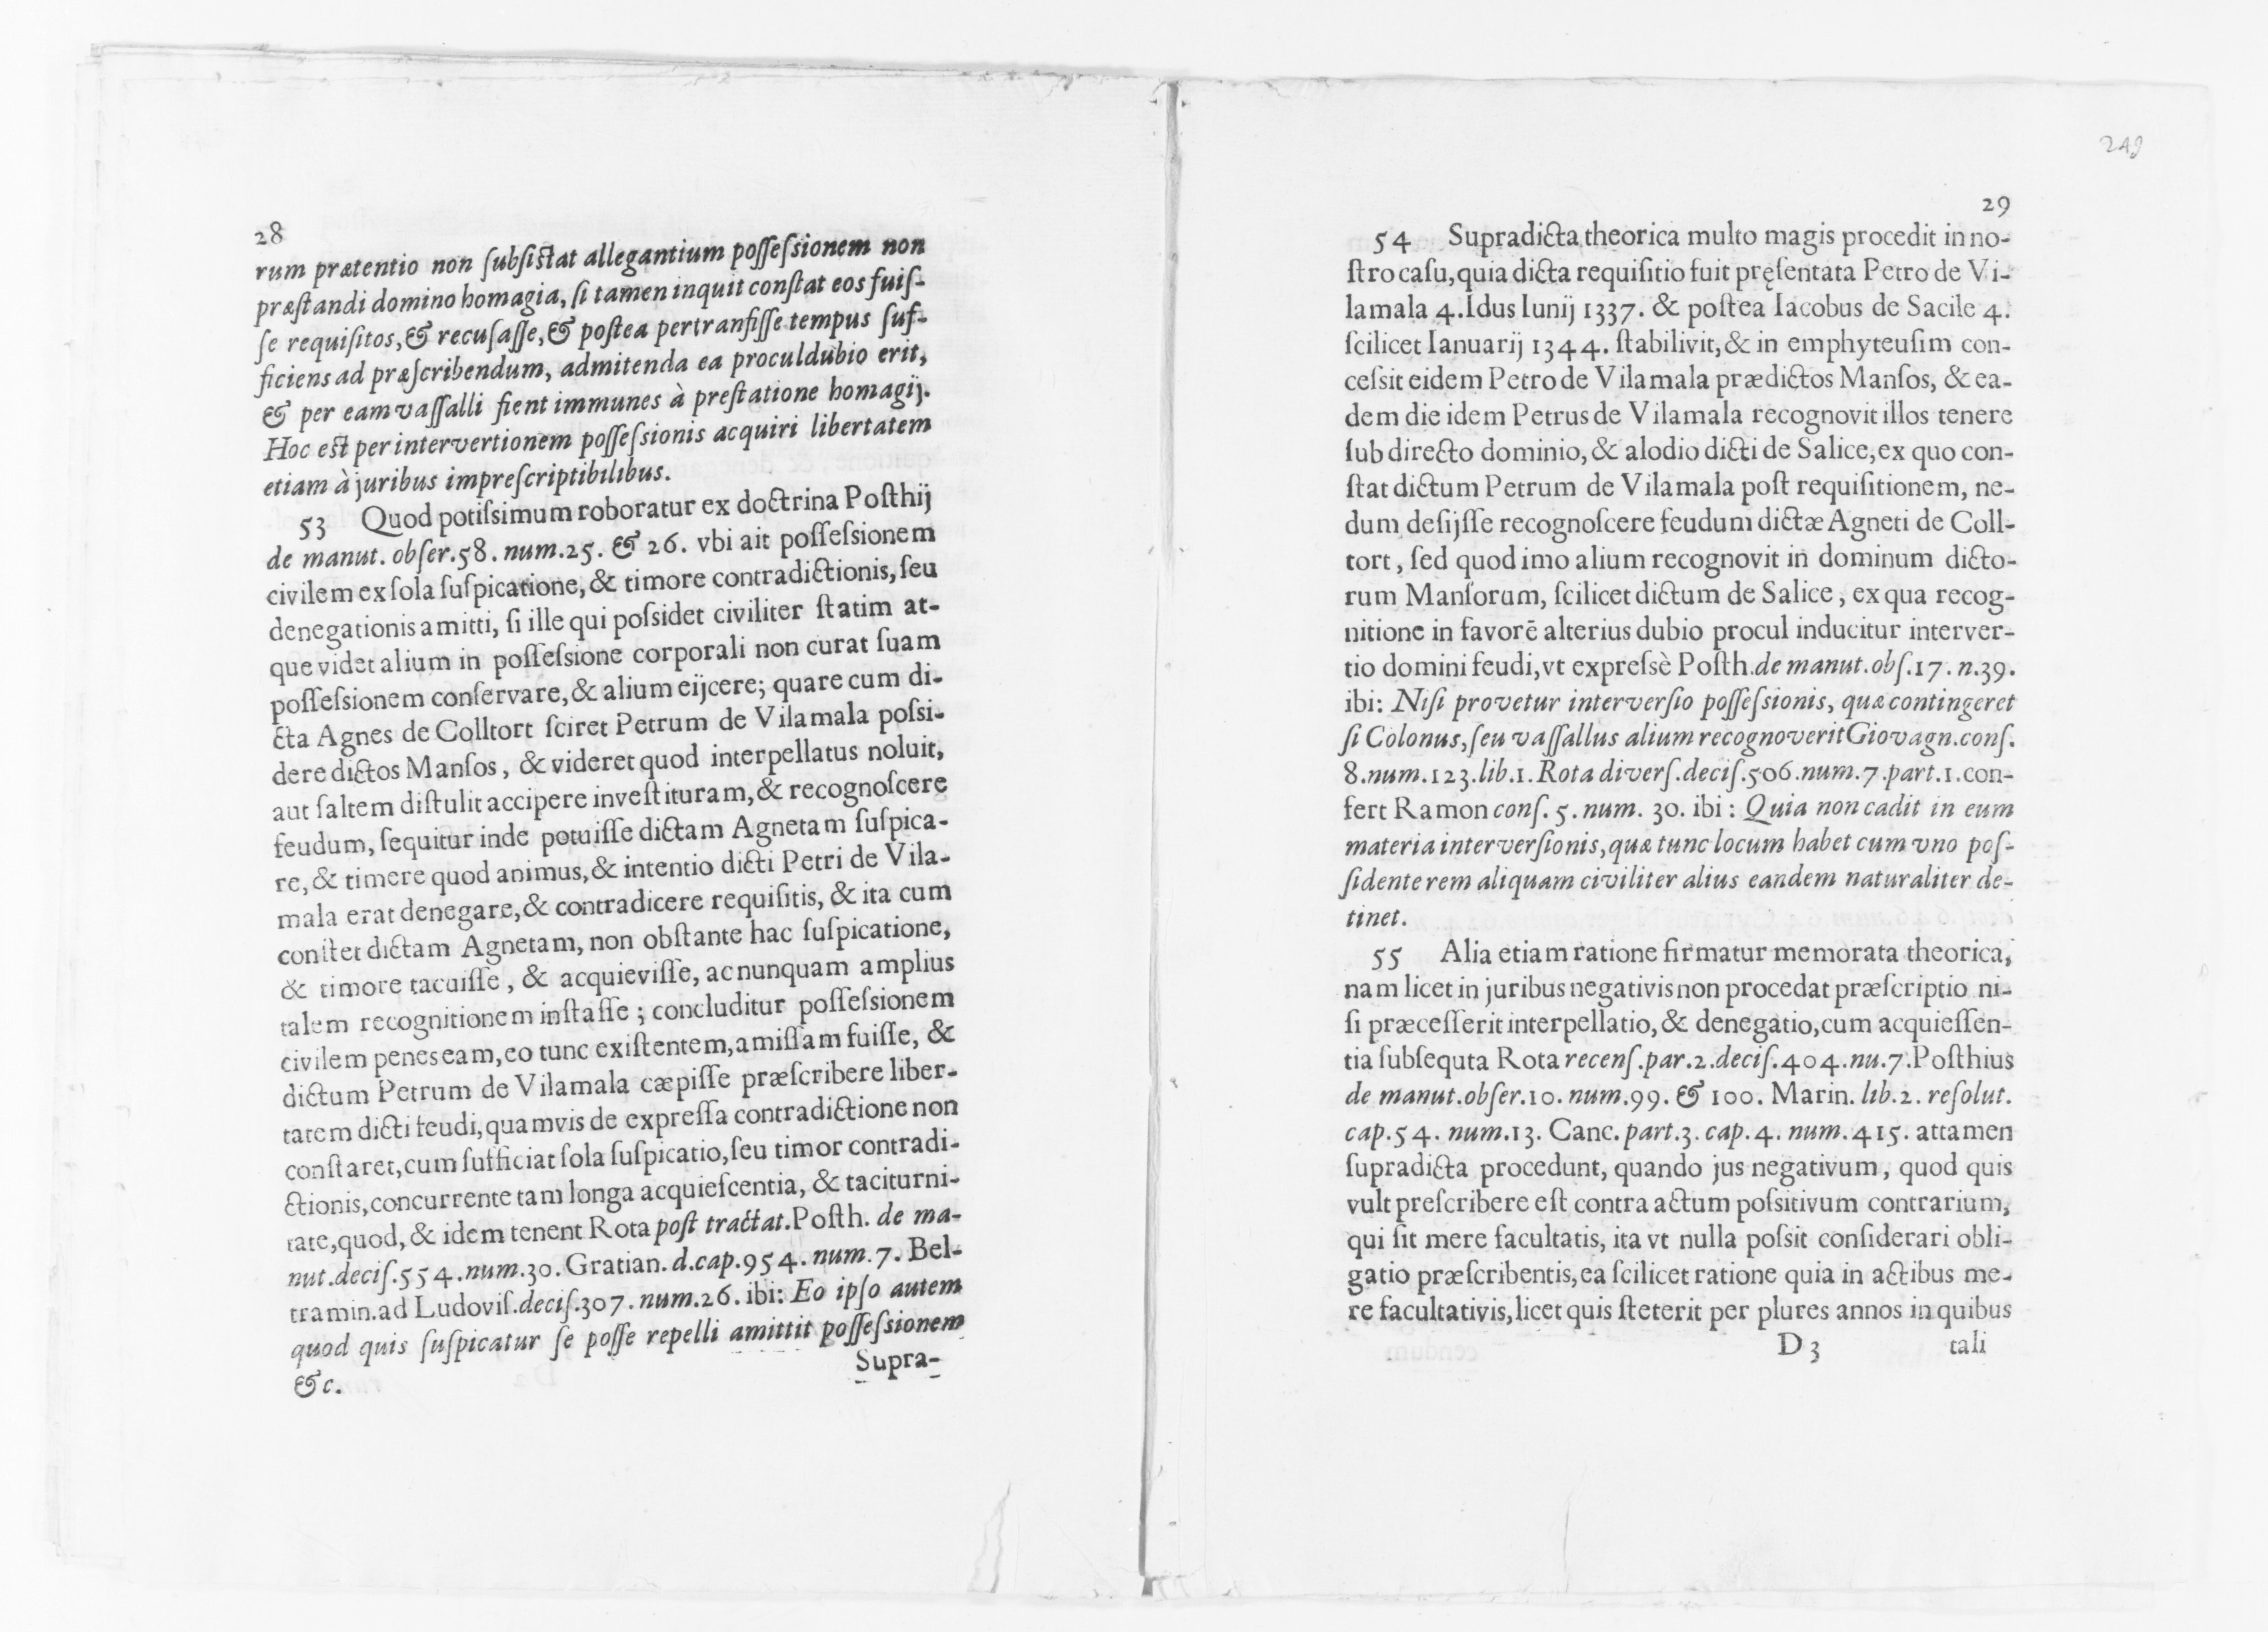 28
rum prætentio non ſubſiſtat allegantium poſſeſsionem non
præſtandi domino homagia, ſi tamen inquit conſtat eos fuiſ-
ſe requiſitos, & recuſaſſe, & poſtea pertranſiſſe tempus ſuf-
ficiens ad præſcribendum, admitenda ea proculdubio erit,
& per eam vaſſalli fient immunes à preſtatione homagij.
Hoc eſt per interventionem poſſeſsionis acquiri libertatem
etiam à juribus impreſcriptibilibus.
53 Quod potiſsimum roboratur ex doctrina Poſthij
de manut. obſer.58. num.25. & 26. vbi ait poſſeſsionem
civilem ex ſola ſuſpicatione, & timore contradictionis, ſeu
denegationis amitti, ſi ille qui poſsidet civiliter ſtatim at-
que videt alium in poſſeſsione corporali non curat ſuam
poſſeſsionem conſervare, & alium eijcere; quare cum di-
cta Agnes de Colltort ſciret Petrum de Vilamala poſsi-
dere dictos Manſos, & videret quod interpellatus noluit,
aut ſaltem diſtulit accipere inveſtituram, & recognoſcere
feudum, ſequitur inde potuiſſe dictam Agnetam ſuſpica-
re, & timere quod animus, & intentio dicti Petri de Vila-
mala erat denegare, & contradicere requiſitis, & ita cum
conſtet dictam Agnetam, non obſtante hac ſuſpicatione,
& timore tacuiſſe, & acquieviſſe, ac nunquam amplius
talem recognitionem inſtaſſe; concluditur poſſeſsionem
civilem penes eam, eo tunc exiſtentem, amiſſam fuiſſe, &
dictum Petrum de Vilamala cæpiſſe præſcribere liber-
tatem dicti feudi, quamvis de expreſſa contradictione non
conſtaret, cum ſufficiat ſola ſuſpicatio, ſeu timor contradi-
ctionis, concurrente tam longa acquieſcentia, & taciturni-
tate, quod, & idem tenent Rota poſt tractat. Poſth. de ma-
nut. deciſ.554. num.30. Gratian. d.cap.954. num.7. Bel-
tramin. ad Ludoviſ. deciſ.307. num.26. ibi: Eo ipſo autem
quod quis ſuſpicatur ſe poſſe repelli amittit poſſeſsionem
&c.
Supra-
249
29
54 Supradicta theorica multo magis procedit in no-
ſtro caſu, quia dicta requiſitio fuit pręſentata Petro de Vi-
lamala 4. Idus Iunij 1337. & poſtea Iacobus de Sacile 4.
ſcilicet Ianuarij 1344. ſtabilivit, & in emphyteuſim con-
ceſsit eidem Petro de Vilamala prædictos Manſos, & ea-
dem die idem Petrus de Vilamala recognovit illos tenere
ſub directo dominio, & alodio dicti de Salice, ex quo con-
ſtat dictum Petrum de Vilamala poſt requiſitionem, ne-
dum deſijſſe recognoſcere feudum dictæ Agneti de Coll-
tort, ſed quod imo alium recognovit in dominum dicto-
rum Manſorum, ſcilicet dictum de Salice, ex qua recog-
nitione in favorē alterius dubio procul inducitur interver-
tio domini feudi, vt expreſsè Poſth. de manut. obſ.17. n.39.
ibi: Niſi provetur interverſio poſſeſsionis, quæ contingeret
ſi Colonus, ſeu vaſſallus alium recognoverit Giovagn. conſ.
8. num.123. lib.1. Rota diverſ. deciſ.506. num.7. part.1. con-
fert Ramon conſ. 5. num. 30. ibi: Quia non cadit in eum
materia interverſionis, quæ tunc locum habet cum vno poſ-
ſidente rem aliquam civiliter alius eandem naturaliter de-
tinet.
55 Alia etiam ratione firmatur memorata theorica,
nam licet in juribus negativis non procedat præſcriptio ni-
ſi præceſſerit interpellatio, & denegatio, cum acquieſſen-
tia ſubſequta Rota recenſ. par.2. deciſ.404. nu.7. Poſthius
de manut. obſer.10. num.99. & 100. Marin. lib.2. reſolut.
cap.54. num.13. Canc. part.3. cap.4. num.415. attamen
ſupradicta procedunt, quando jus negativum, quod quis
vult preſcribere eſt contra actum poſsitivum contrarium,
qui ſit mere facultatis, ita vt nulla poſsit conſiderari obli-
gatio præſcribentis, ea ſcilicet ratione quia in actibus me-
re facultativis, licet quis ſteterit per plures annos in quibus
D 3 tali